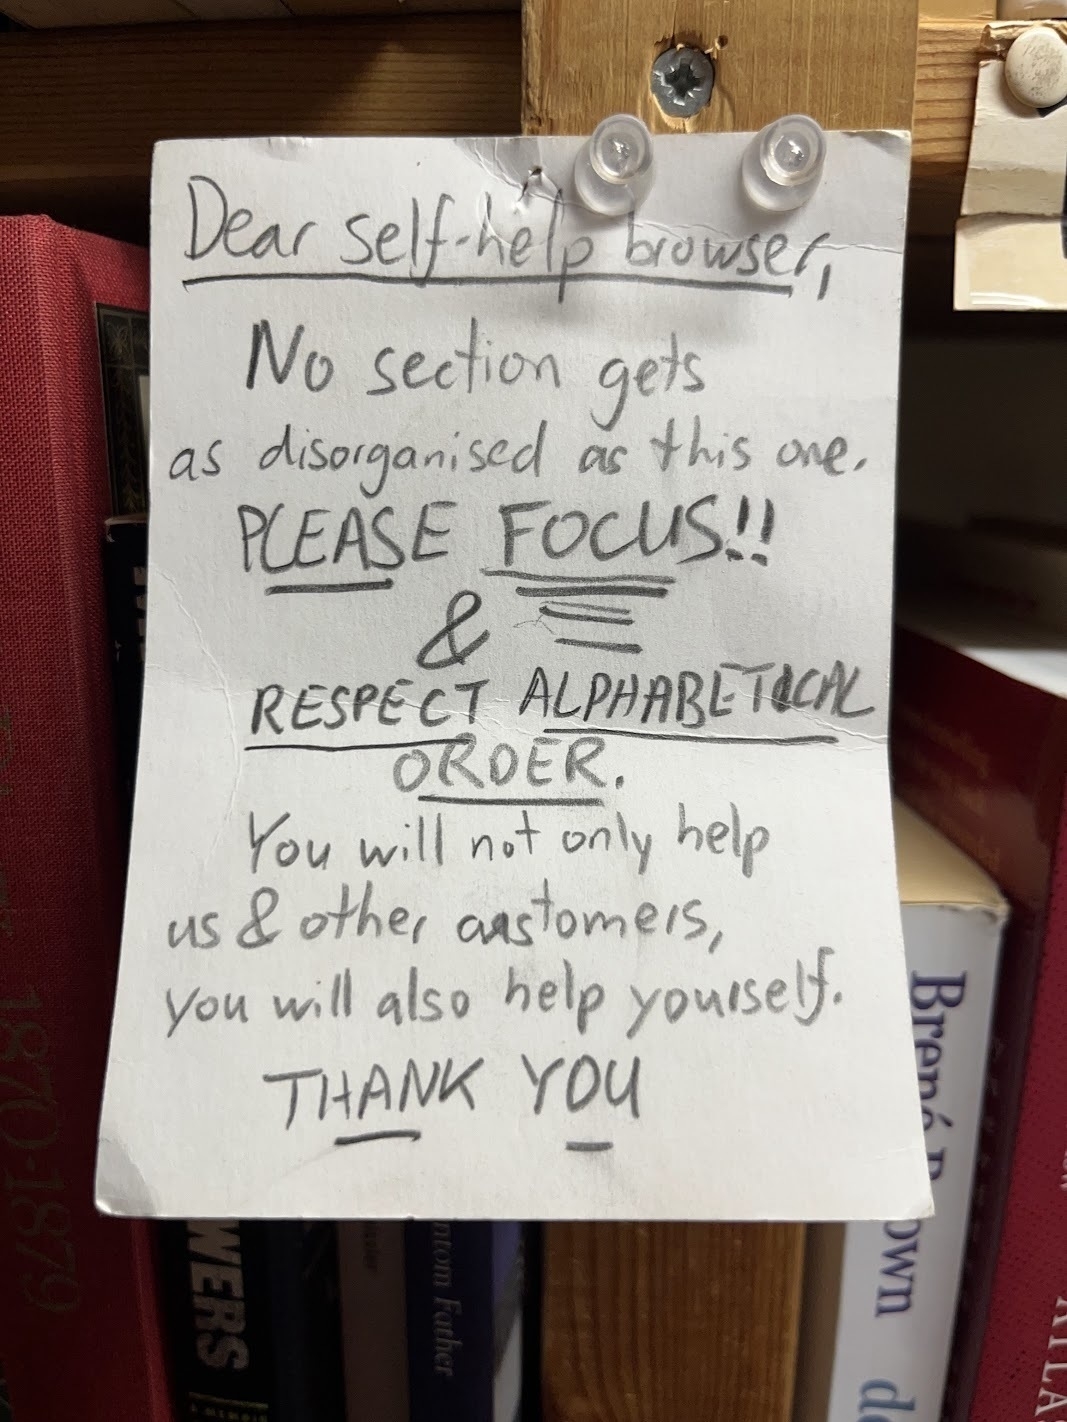 Dear self-help browser,
No section gets
as disorganised as this one.
PLEASE FOCUS!!
&
RESPECT ALPHABETICAL
ORDER.
You will not only help
us & other customers,
you will also help yourself.
THANK YOU
1870-1879
WERS
ntom Father
Brené
own